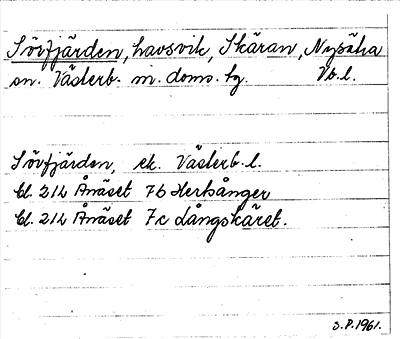 Sörfjärden, havsvik, Skäran, Nysätra
sn. Västerb. m. doms. tg. Vb.l.
Sörfjärden, ek. Västerb.l.
bl. 212 Ånäset 7b Herrsånger
bl. 212 Ånäset 7c Långskäret.
S.P.1961.